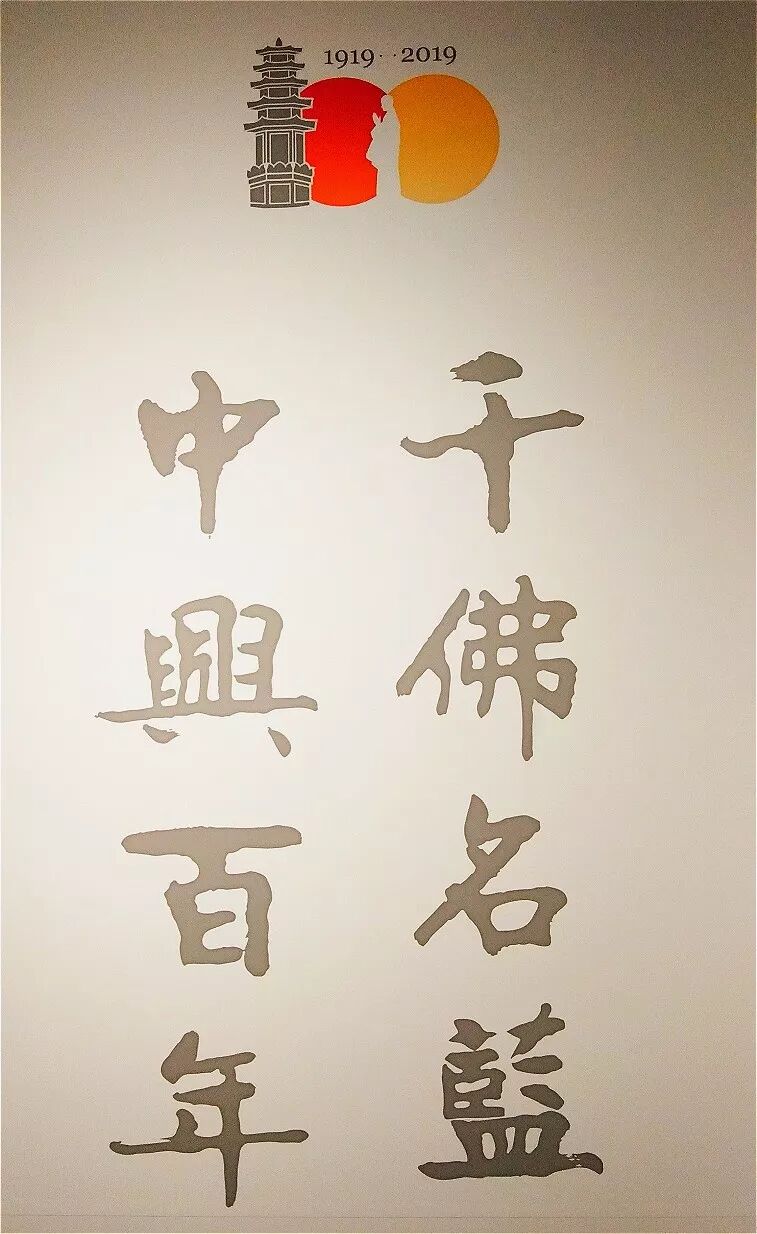 1919··2019
千佛名藍
中興百年